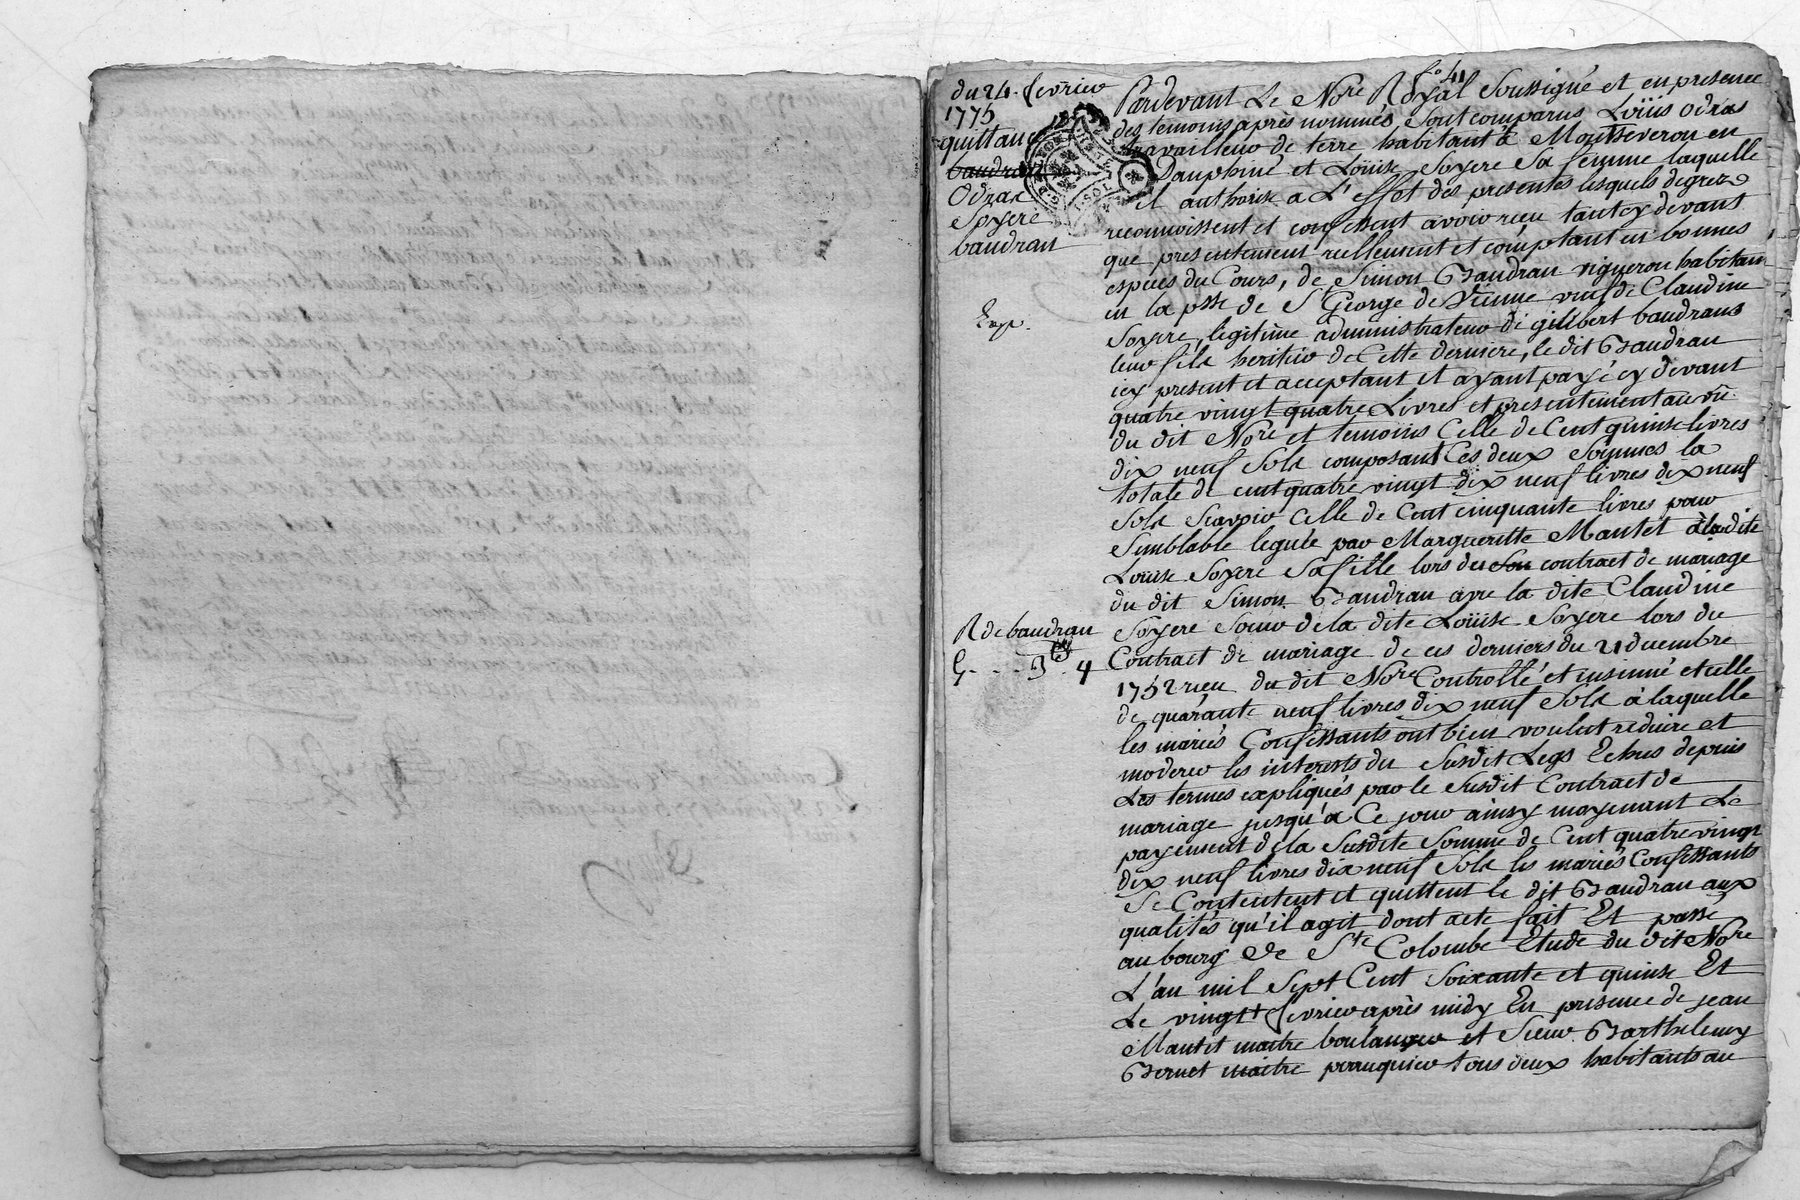 fo 41
du 24 fevrier
1775
quittance
baudran
Odrax
Soyere
baudran
Exp.
R de baudran
3 4
Pardevant Le Nore Royal Soussigné et en presence
des temoins après nommés Sont comparus Loüis Odras
travailleur de terre habitant à Montseveron en
Dauphiné et Loüise Soyere Sa femme laquelle
il authorise a L'effet des presentes lesquels de grez
reconnoissent et confessent avoir reçu tant cy devant
que presentement reellement et comptant en bonnes
especes du Cours, de Simon Baudran vigneron habitant
en la psse de St George de Vienne veuf de Claudine
Soyere, legitime administrateur de gilibert baudrans
leur fils heritier de Cette derniere, le dit Baudran
icy present et acceptant et ayant payé cy devant
quatre vingt quatre Livres et presentement au vû
du dit Nore et temoins Celle de Cent quinse livres
dix neuf Sols composant Ces deux Sommes la
totale de cent quatre vingt dix neuf livres dix neuf
Sols Sçavoir Celle de Cent cinquante livres pour
Semblable leguée par Margueritte Mantet à la dite
Loüise Soyere Sa fille lors du Son contract de mariage
du dit Simon Baudran avec la dite Claudine
Soyere Soeur de la dite Loüise Soyere lors du
Contract de mariage de ces derniers du 21 decembre
1752 reçu du dit Nore Controllé et insinué et celle
de quarante neuf livres dix neuf Sols à laquelle
les mariés Confessants ont bien voulut reduire et
moderer les interests du Susdit Legs Echus depuis
Les termes expliqués par le Susdit Contract de
mariage jusqu'à Ce jour ainsy moyenant Le
payement de la Susdite Somme de Cent quatre vingt
dix neuf livres dix neuf Sols les mariés Confessants
Se Contentent et quittent le dit Baudran aux
qualités qu'il agit dont acte fait Et passé
au bourg de Ste Colombe Etude du dit Nore
L'an mil Sept Cent Soixante et quinse Et
Le vingt fevrier après midy En presence de jean
Mantet maitre boulanger et Sieur Barthelemy
Bernet maitre perruquier tous deux habitants au